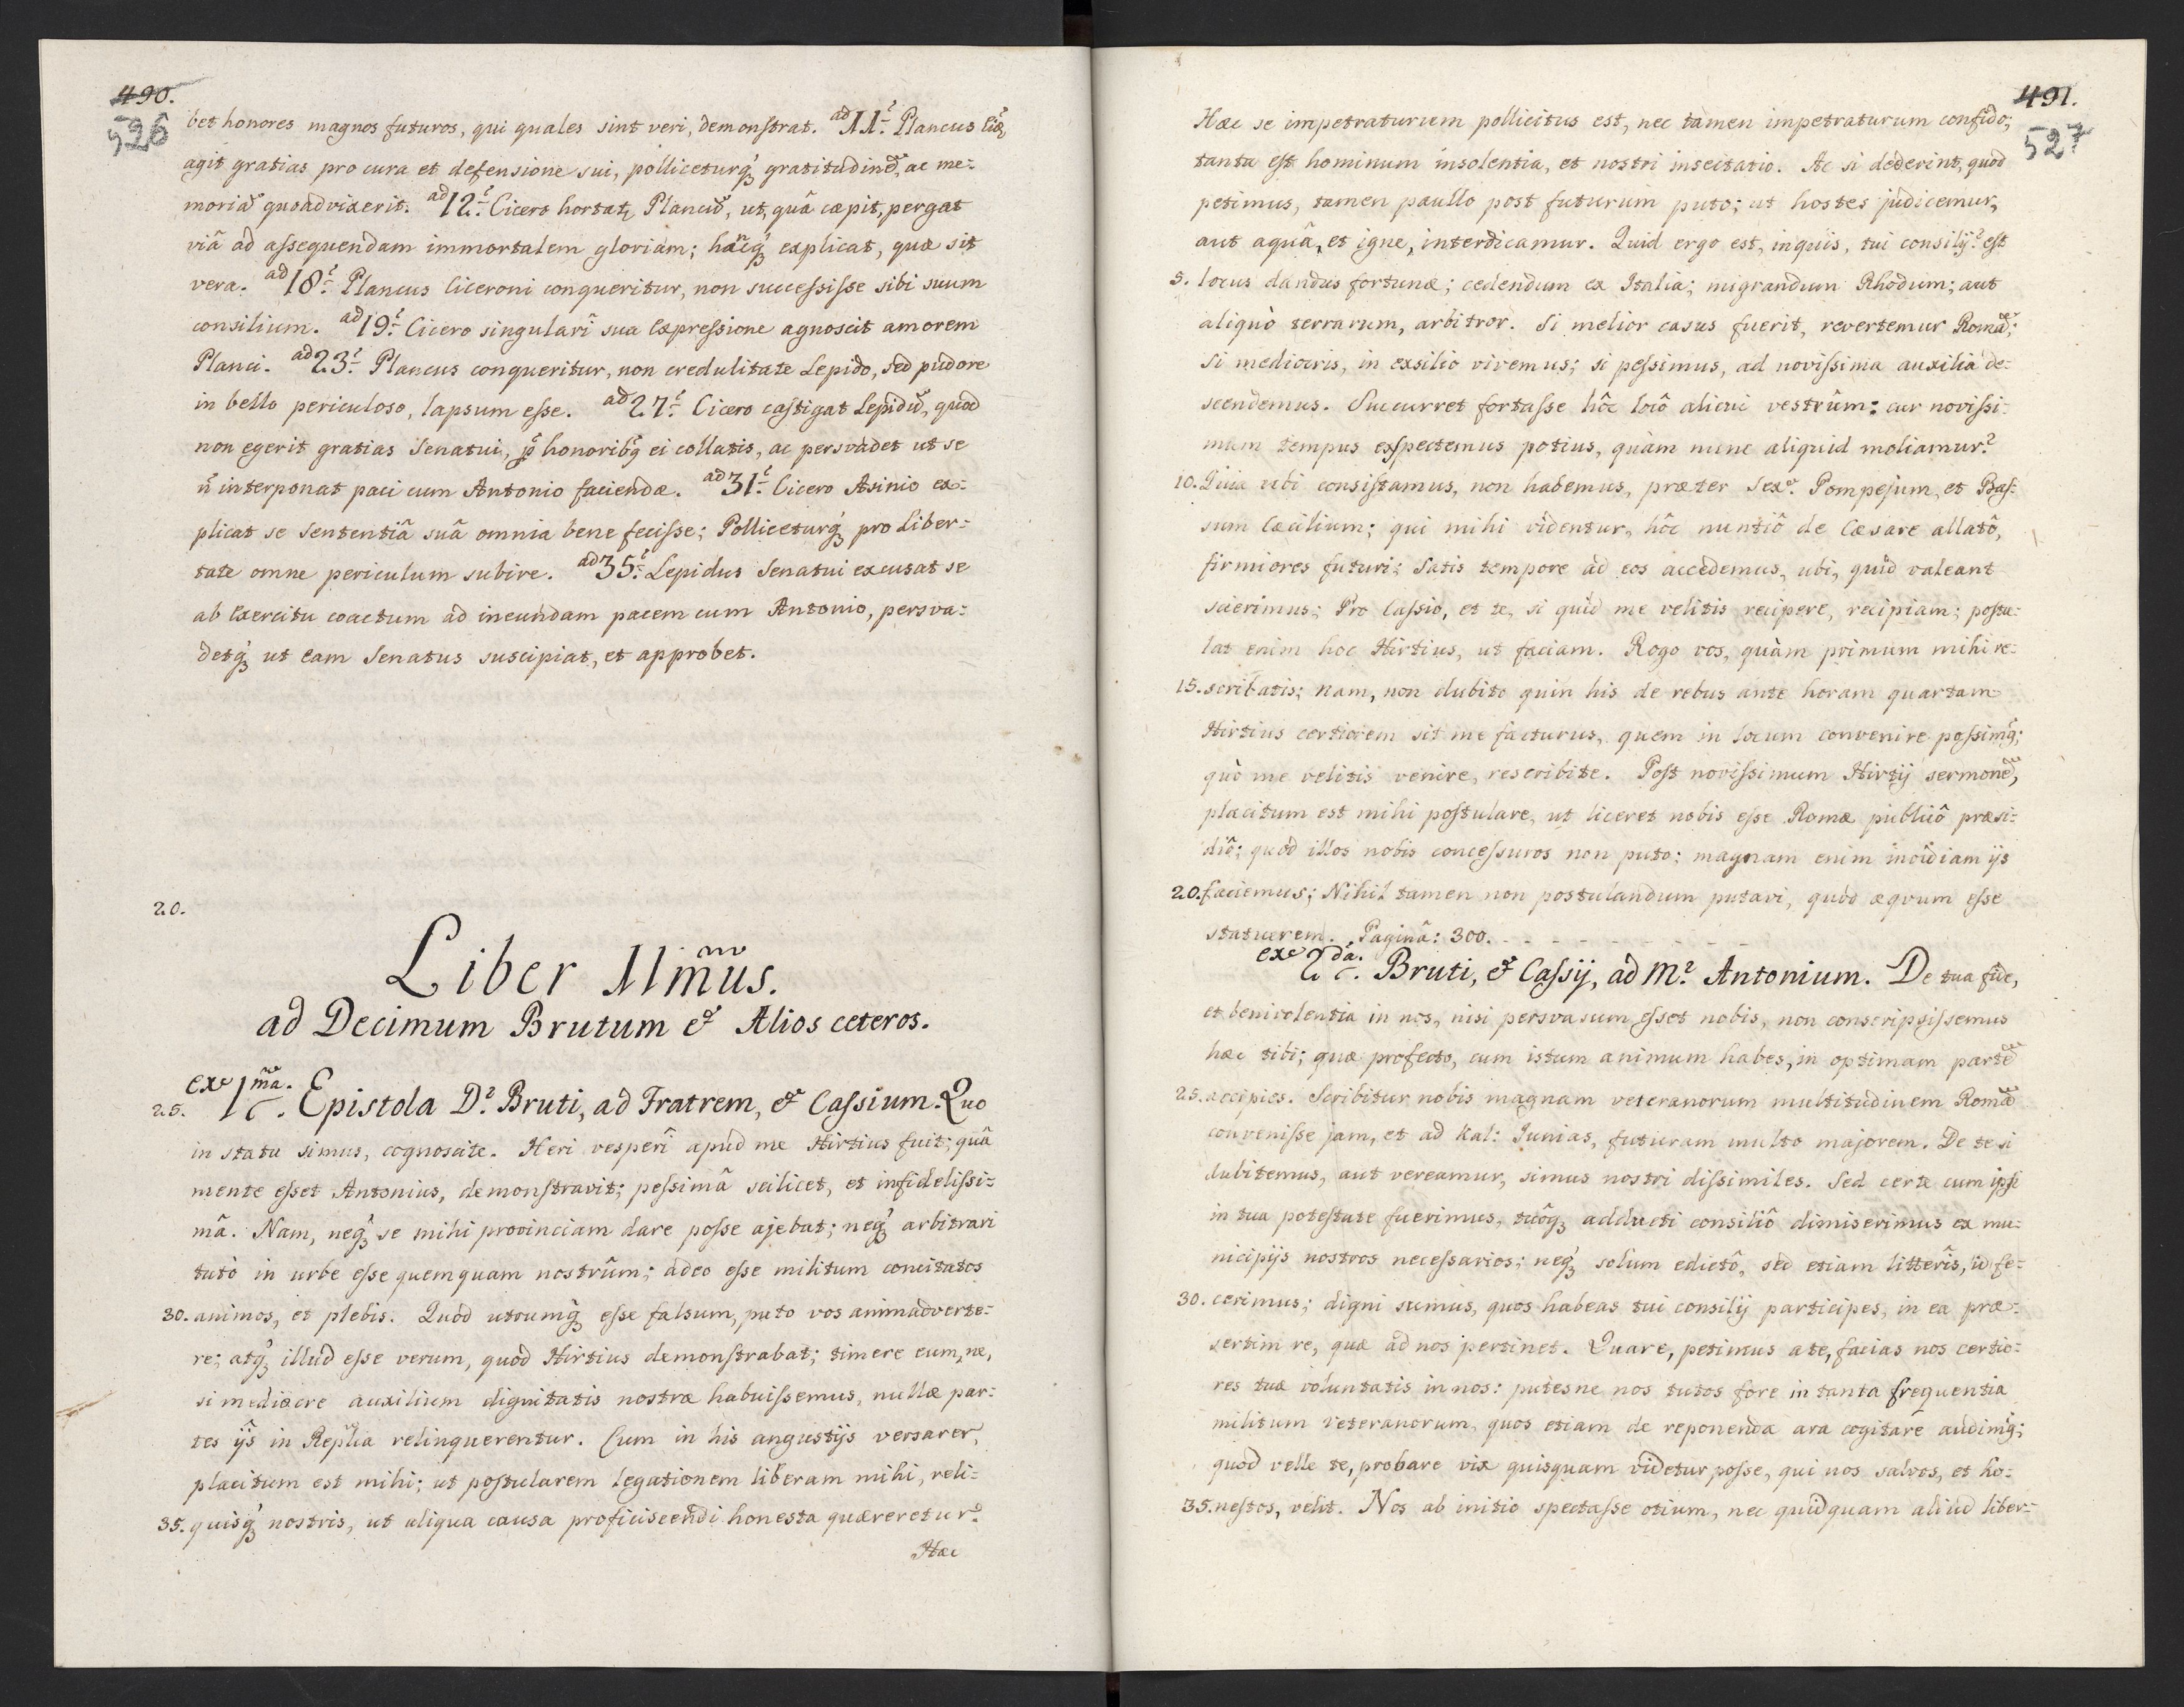 490.
526
bet honores magnos futuros, qui quales sint veri, demonstrat. ad 11.ā Plancus
agit gratias pro cura et defensione sui, polliceturq́ꝫ gratitudinē, ac me:
moriā quoad vixerit. ad 12.ā Cicero hortatꝫ Plancū, ut, quâ cæpit, pergat
viâ ad assequendam immortalem gloriam; hancq́ꝫ explicat, quæ sit
vera. ad 18.ā Plancus Ciceroni conqueritur, non successisse sibi suum
consilium. ad 19.ā Cicero singulari sua expressione agnoscit amorem
Planci. ad 23.ā Plancus conqueritur, non credulitate Lepido, sed pudore
in bello periculoso, lapsum esse. ad 27.ā Cicero castigat Lepidū, quod
non egerit gratias Senatui, ꝓ honoribꝰ ei collatis, ac persvadet ut se
n̄ interponat paci cum Antonio faciendæ. ad 31.ā Cicero Asinio ex:
plicat se sententiâ suâ omnia bene fecisse; Polliceturq́ꝫ pro Liber:
tate omne periculum subire. ad 35.ā Lepidus Senatui excusat se
ab Exercitu coactum ad ineundam pacem cum Antonio, persva:
detq́ꝫ ut eam Senatus suscipiat, et approbet.
20.
Liber 11m̃us.
ad Decimum Brutum & Alios ceteros.
25. exe 1mā. Epistola D.? Bruti, ad Fratrem, & Cassium. Quo
in statu simus, cognoscite. Heri vesperî apud me Hirtius fuit; quâ
mente esset Antonius, demonstravit; pessimâ scilicet, et infidelissi:
mâ. Nam, neq́ꝫ se mihi provinciam dare posse ajebat; neq́ꝫ arbitrari
tutò in urbe esse quemquam nostrûm; adeo esse militum concitatos
30. animos, et plebis. Quod utrumq́ꝫ esse falsum, puto vos animadverte:
re; atq́ꝫ illud esse verum, quod Hirtius demonstrabat; timere eum, ne,
si mediocre auxilium dignitatis nostræ habuissemus, nullæ par:
tes ijs in Rep̃lia relinquerentur. Cum in his angustijs versarer,
placitum est mihi; ut postularem legationem liberam mihi, reli:
35. quisq́ꝫ nostris, ut aliqua causa proficiscendi honesta quæreretur.
Hæc
491.
527
Hæc se impetraturum pollicitus est, nec tamen impetraturum confido;
tanta est hominum insolentia, et nostri insectatio. Ac si dederint, quod
petimus, tamen paullo post futurum puto; ut hostes judicemur,
aut aquâ, et igne, interdicamur. Quid ergo est, inquis, tui consilij? est
5. locus dandus fortunæ; cedendum ex Italia; migrandum Rhodum; aut
aliquò terrarum, arbitror. Si melior casus fuerit, revertemur Romā;
si mediocris, in exsilio vivemus; si pessimus, ad novissima auxilia de:
scendemus. Succurret fortasse hôc locô alicui vestrûm: cur novissi:
mum tempus exspectemus potius, quàm nunc aliquid moliamur?
10. Quia ubi consistamus, non habemus, præter Sex. Pompejum, et Bas:
sum Cæcilium; qui mihi videntur, hôc nuntiô de Cæsare allatô,
firmiores futuri; Satis tempore ad eos accedemus, ubi, quid valeant
scierimus; Pro Cassio, et te, si quid me velitis recipere, recipiam; postu:
lat enim hoc Hirtius, ut faciam. Rogo vos, quàm primum mihi re:
15. scribatis; nam, non dubito quin his de rebus ante horam quartam
Hirtius certiorem sit me facturus, quem in locum convenire possimꝰ;
quò me velitis venire, rescribite. Post novissimum Hirtij sermonē,
placitum est mihi postulare, ut liceret nobis esse Romæ publicô præsi:
diô; quod illos nobis concessuros non puto; magnam enim invidiam ijs
20. faciemus; Nihil tamen non postulandum putavi, quod æqvum esse
statuerem. Paginâ: 300. - - - - - - - -
exe 2dā. Bruti, & Cassij, ad M.? Antonium. De tua fide,
et benivolentia in nos, nisi persvasum esset nobis, non conscripsissemus
hæc tibi; quæ profecto, cum istum animum habes, in optimam partē
25. accipies. Scribitur nobis magnam veteranorum multitudinem Romā
convenisse jam, et ad Kal: Junias, futuram multo majorem. De te si
dubitemus, aut vereamur, simus nostri dissimiles. Sed certe cum ipsi
in tua potestate fuerimus, tuôq́ꝫ adducti consiliô dimiserimus ex mu:
nicipijs nostros necessarios; neq́ꝫ solum edictô, sed etiam litterîs, id fe:
30. cerimus; digni sumus, quos habeas tui consilij participes, in ea præ:
sertim re, quæ ad nos pertinet. Quare, petimus a te, facias nos certio:
res tuæ voluntatis in nos: putesne nos tutos fore in tanta frequentia
militum veteranorum, quos etiam de reponenda ara cogitare audimꝰ;
quod velle te, probare vix quisquam videtur posse, qui nos salvos, et ho:
35. nestos, velit. Nos ab initio spectasse otium, nec quidquam aliud liber: